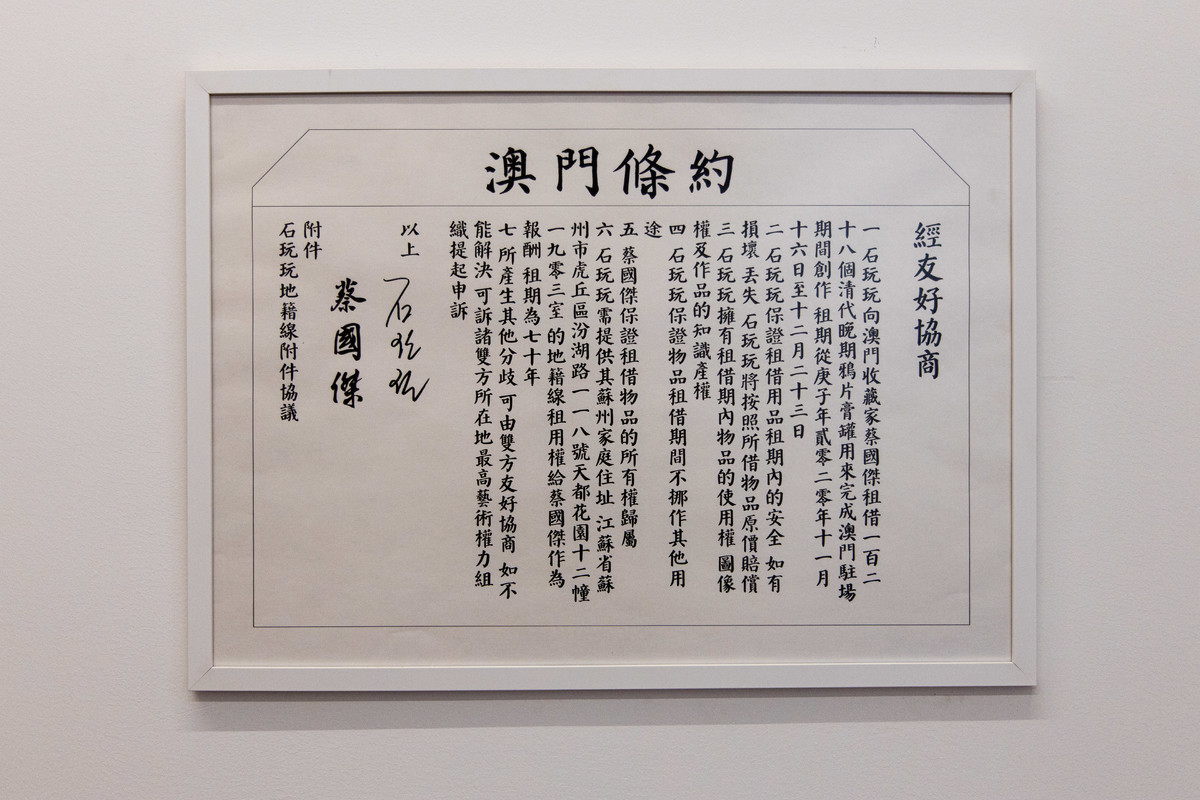 澳門條約
經友好協商
一 石玩玩向澳門收藏家蔡國傑租借一百二
十八個清代晚期鴉片膏罐用來完成澳門駐場
期間創作 租期從庚子年貳零二零年十一月
十六日至十二月二十三日
二 石玩玩保證租借用品租期內的安全 如有
損壞 丟失 石玩玩將按照所借物品原價賠償
三 石玩玩擁有租借期內物品的使用權 圖像
權及作品的知識產權
四 石玩玩保證物品租借期間不挪作其他用
途
五 蔡國傑保證租借物品的所有權歸屬
六 石玩玩需提供其蘇州家庭住址 江蘇省蘇
州市虎丘區汾湖路一一八號天都花園十二幢
一九零三室 的地籍線租用權給蔡國傑作為
報酬 租期為七十年
七 所產生其他分歧 可由雙方友好協商 如不
能解決 可訴諸雙方所在地最高藝術權力組
織提起申訴
以上
石玩玩
蔡國傑
附件
石玩玩地籍線附件協議